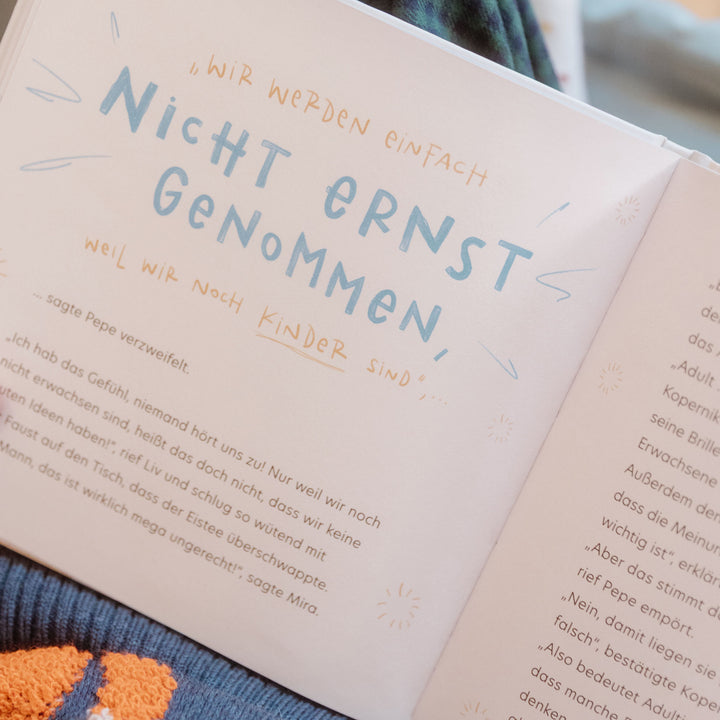 „Wir werden einfach
Nicht ernst
genommen,
weil wir noch Kinder sind“,...
... sagte Pepe verzweifelt.
„Ich hab das Gefühl, niemand hört uns zu! Nur weil wir noch
nicht erwachsen sind, heißt das doch nicht, dass wir keine
uten Ideen haben!“, rief Liv und schlug so wütend mit
Faust auf den Tisch, dass der Eistee überschwappte.
Mann, das ist wirklich mega ungerecht!“, sagte Mira.
de
das
„Adult
Kopernik
seine Brille
Erwachsene
Außerdem der
dass die Meinun
wichtig ist“, erklär
„Aber das stimmt d
rief Pepe empört.
„Nein, damit liegen sie
falsch“, bestätigte Kope
„Also bedeutet Adult
dass manche
denken